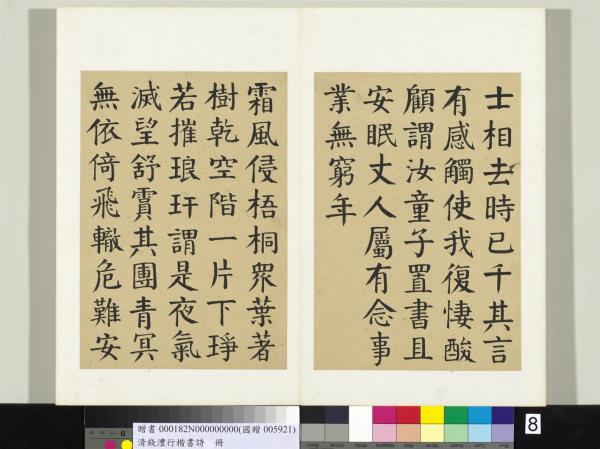 士相去時已千其言
有感觸使我復悽酸
顧謂汝童子置書且
安眠丈人屬有念事
業無窮年
霜風侵梧桐眾葉著
樹乾空階一片下琤
若摧琅玕謂是夜氣
滅望舒霣其團青冥
無依倚飛轍危難安
贈書 000182N000000000(國贈 005921)
清錢灃行楷書詩 冊
8